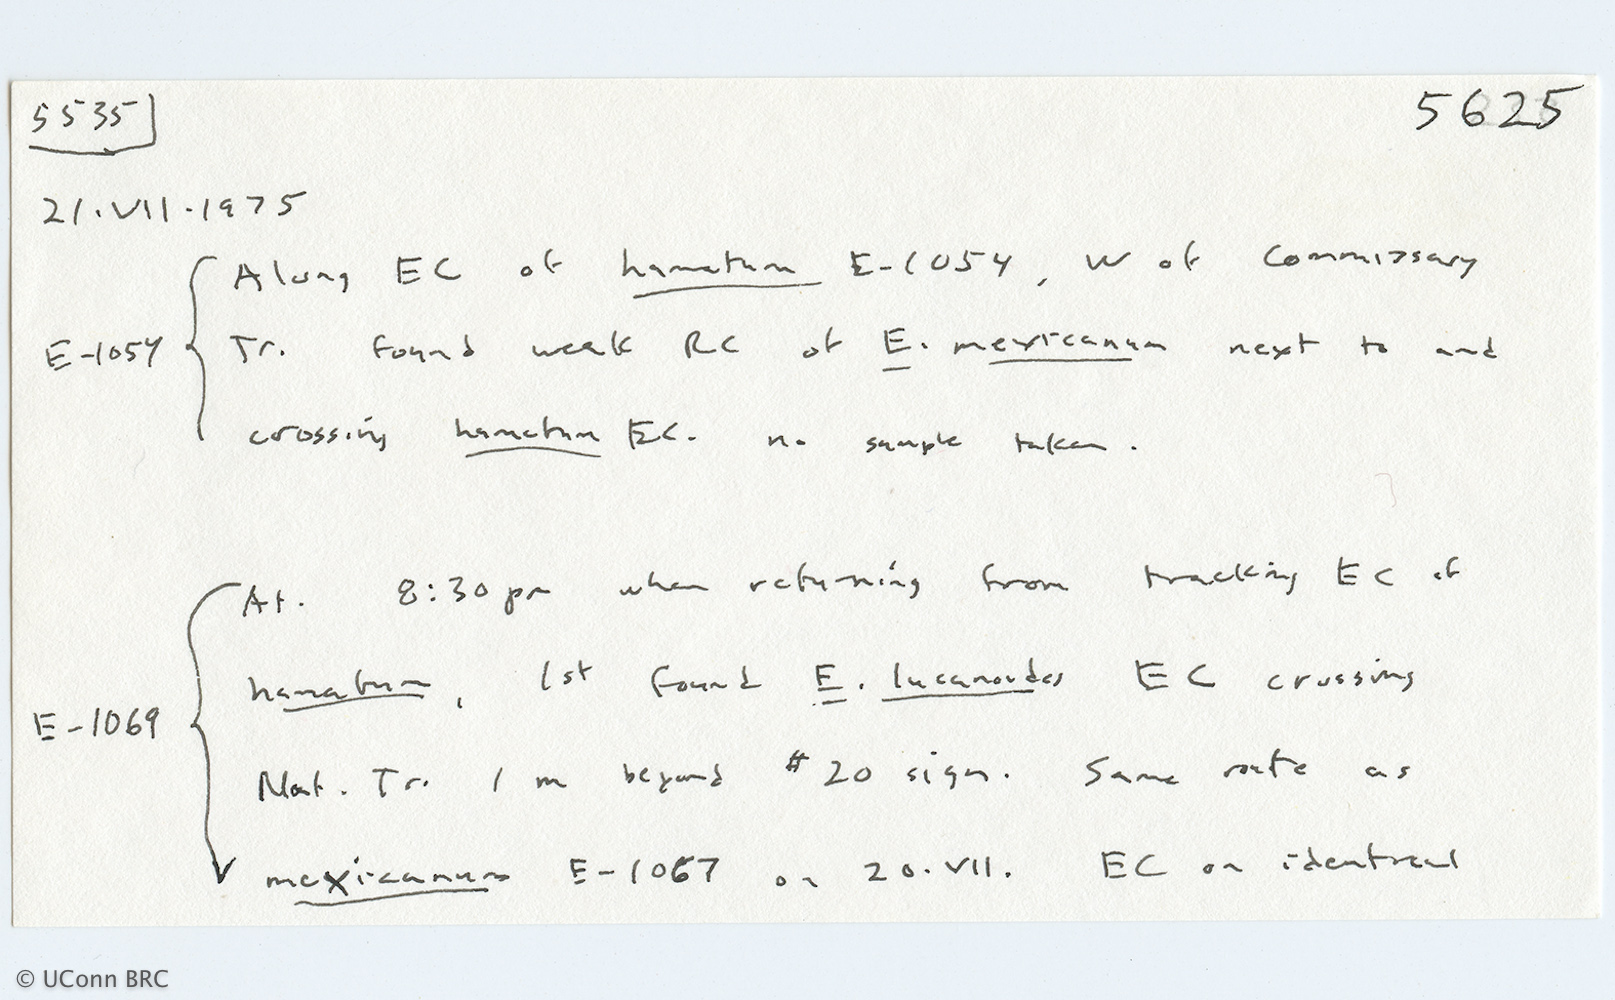 5535
5625
21.VII.1975
Along EC of hamatum E-1054, W of Commissary
E-1054
Tr. found weak RC of E. mexicanum next to and
crossing hamatum EC. no sample taken.
At. 8:30 pm when returning from tracking EC of
hamatum, 1st found E. lucanoides EC crossing
E-1069
Nat. Tr. 1 m beyond #20 sign. Same route as
mexicanum E-1067 on 20.VII. EC on identical
© UConn BRC